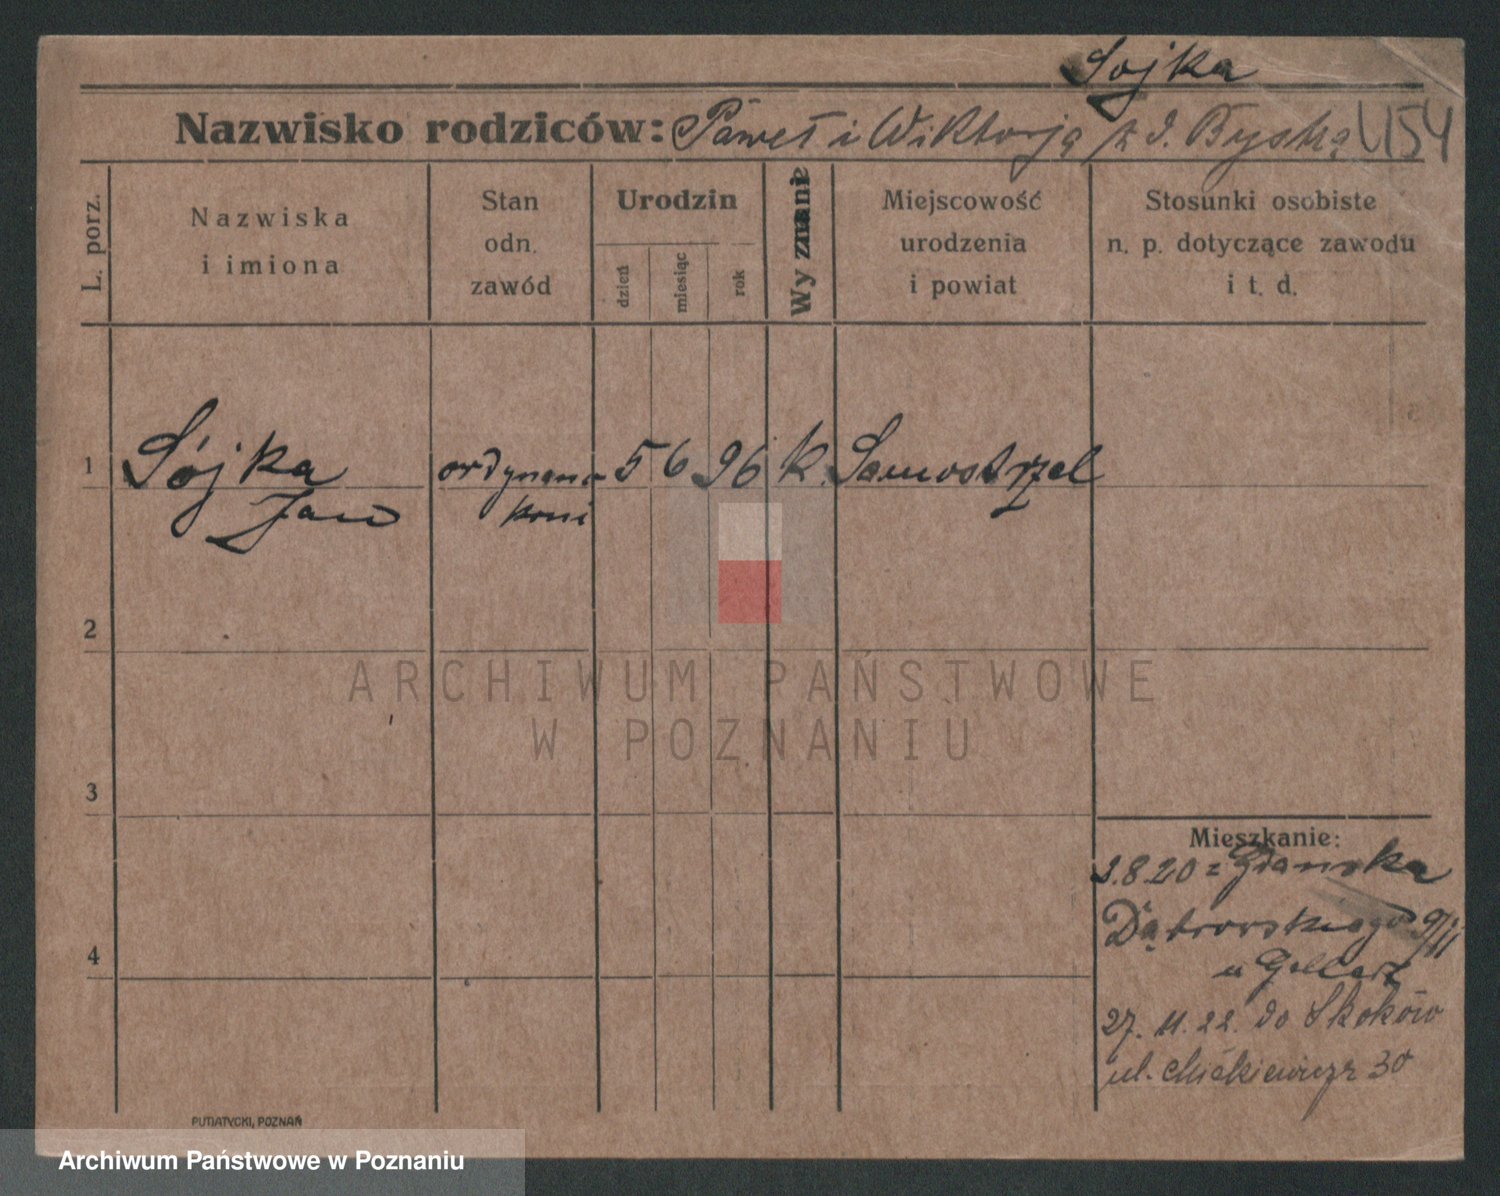 Sojka
Nazwisko rodziców: Paweł i Wiktorją z d. Byską
154
L. porz.
Nazwiska
i imiona
Stan
odn.
zawód
Urodzin
dzień
miesiąc
rok
Wyznanie
Miejscowość
urodzenia
i powiat
Stosunki osobiste
n. p. dotyczące zawodu
i t. d.
1 Sójka 5 6 96 k. Samostrzel
Jan koni
2
3
4
ARCHIWUM PAŃSTWOWE
W POZNANIU
Mieszkanie:
8.20 z Gdańska
Dąbrowskiego 9/
u
27. 11. 22. do Skoków
ul. Mickiewicza 30
PUTIATYCKI, POZNAŃ
Archiwum Państwowe w Poznaniu